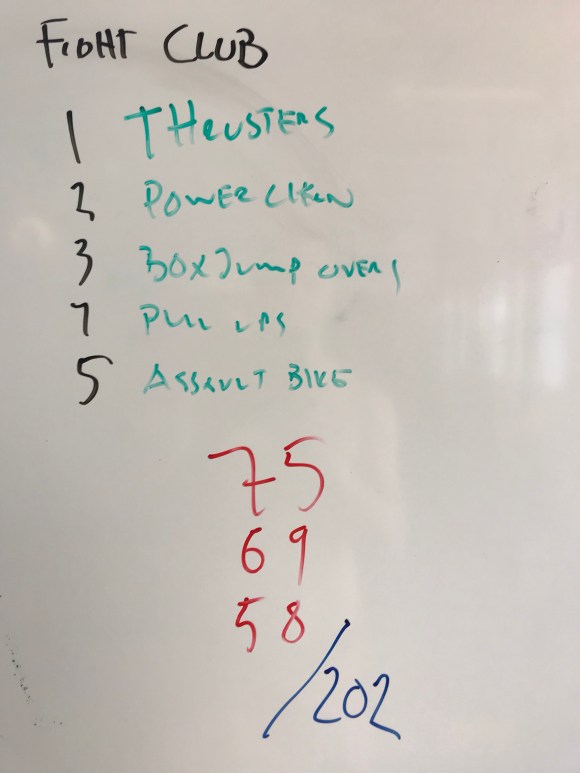 FIGHT CLUB
1 THRUSTERS
2 POWER CLEAN
3 BOX JUMP OVERS
4 PULL UPS
5 ASSAULT BIKE
75
69
58
/202